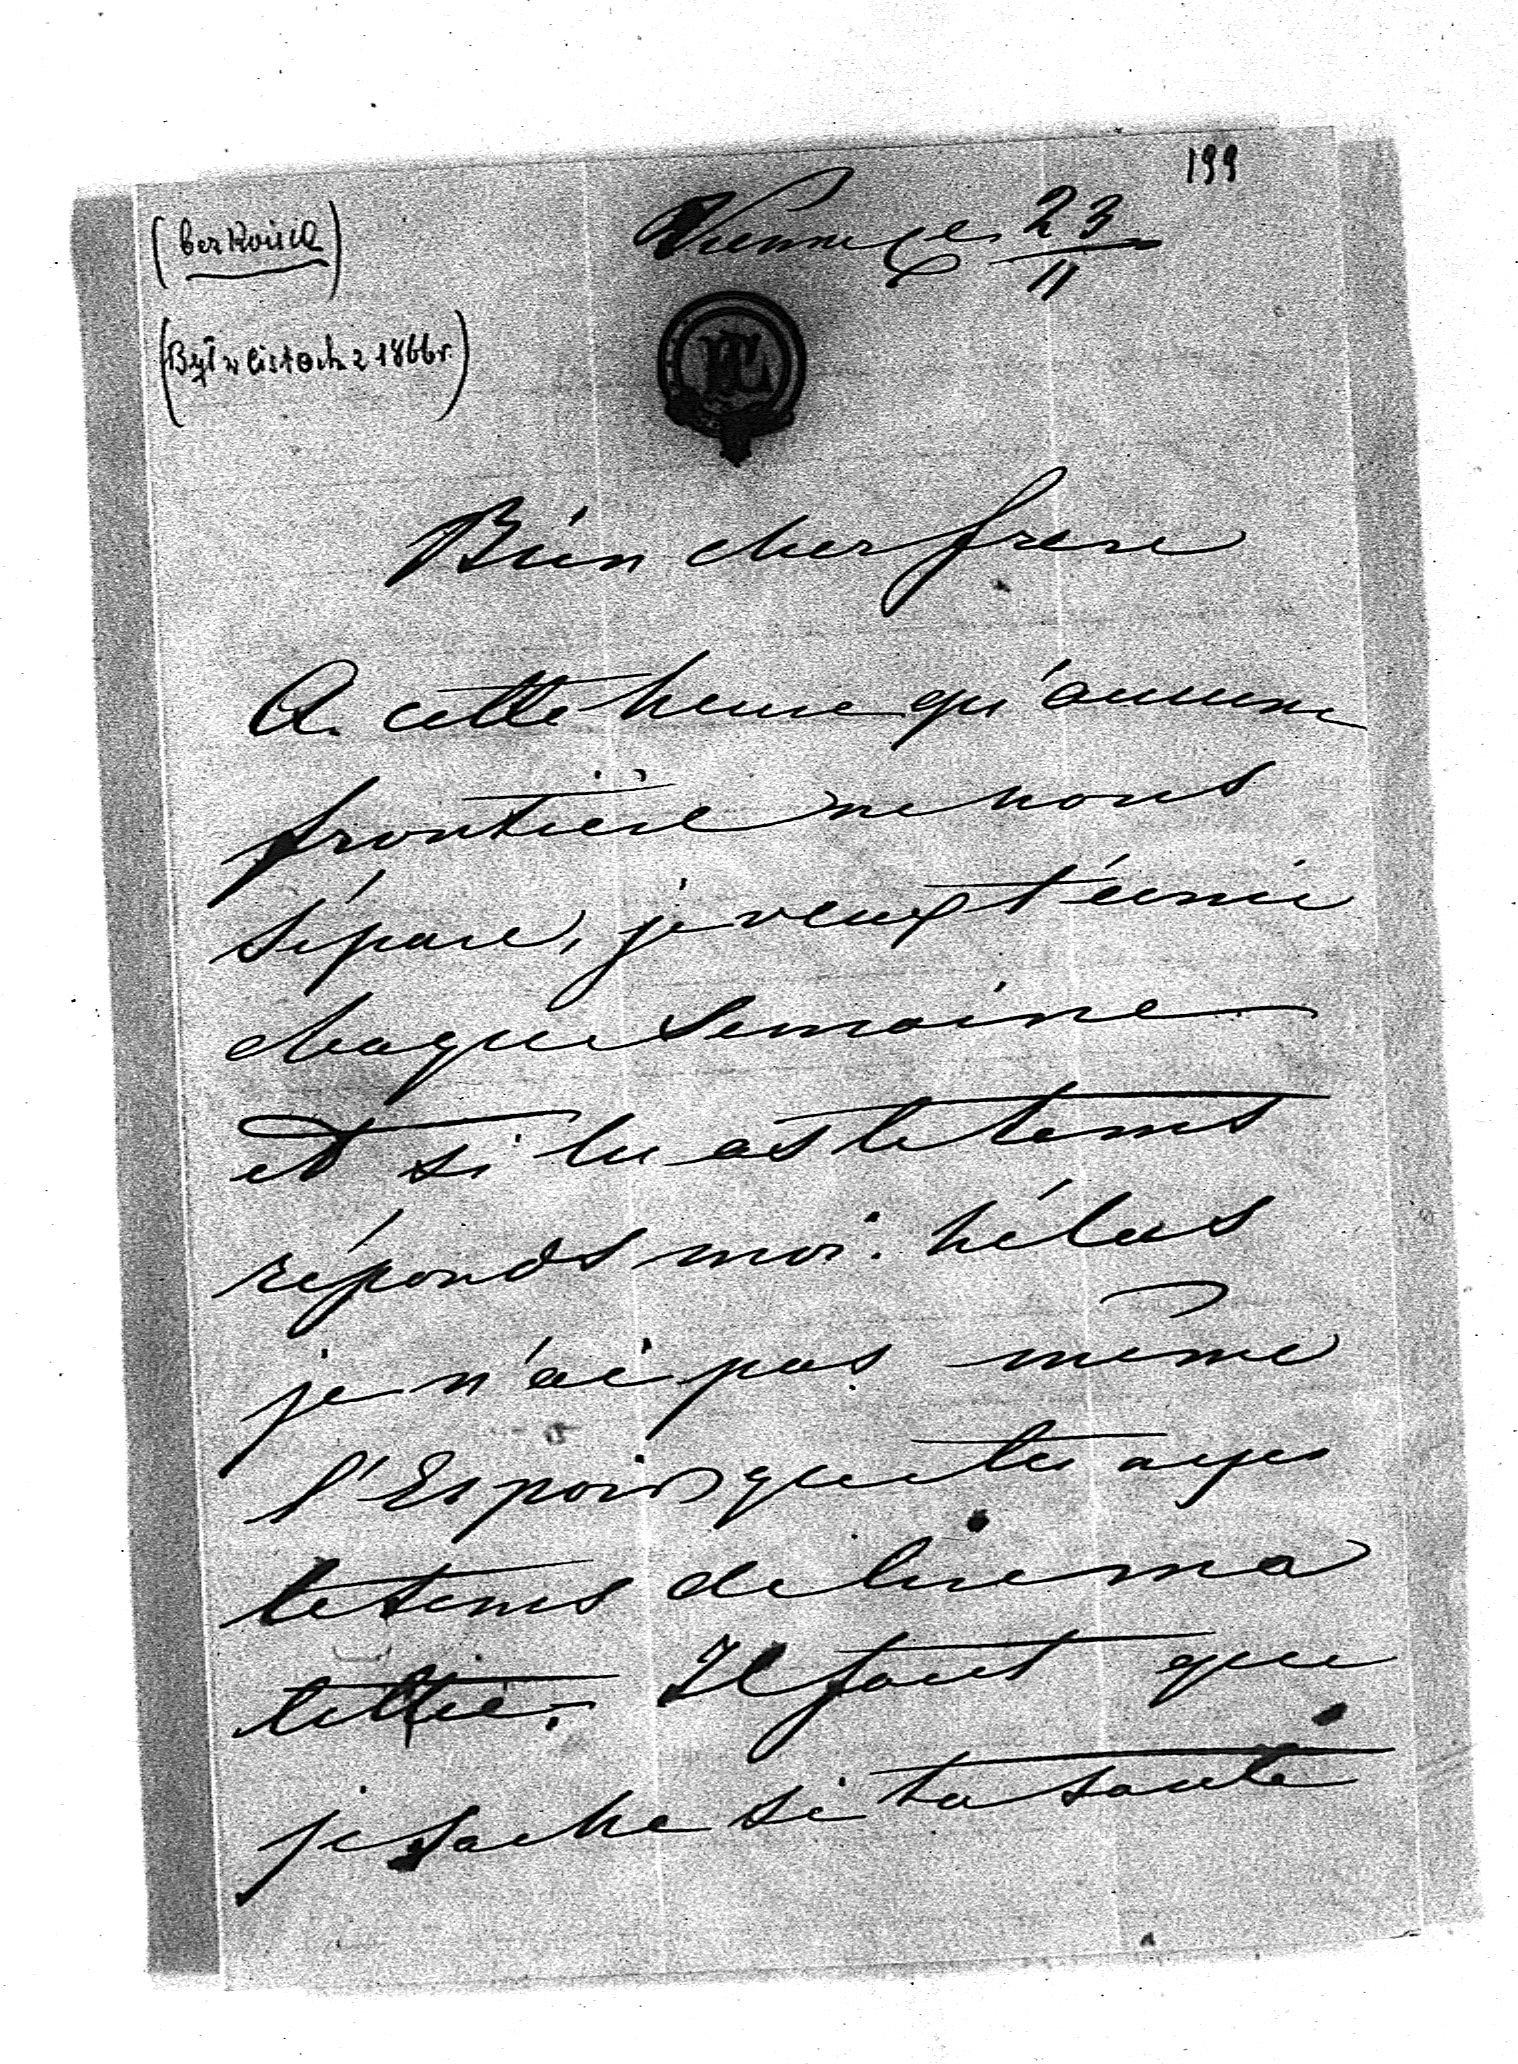 199
Vienne ce 23/11
(bez Roku)
(Był w listach z 1866 r.)
Bien cher frere
A cette heure qu'aucune
frontière ne nous
sépare, je veux t'écrire
chaque semaine
et si tu as le tems
réponds moi. hélas
je n'ai pas même
l'Espoir que tu ayes
le tems de lire ma
lettre. Il faut que
je sache si ta santé